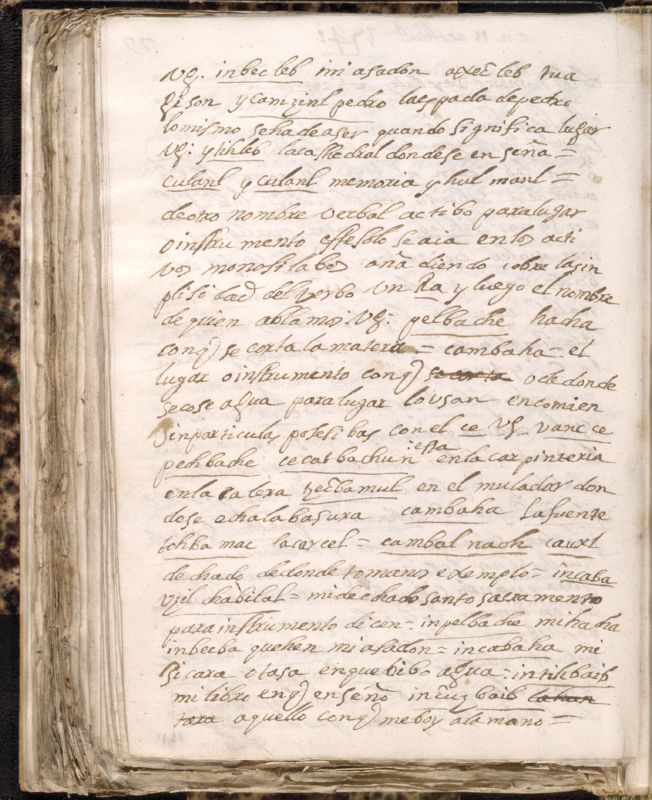 Vg. inbecleb mi asadon
gison y camzinl pedro la espada de pedro
lo mismo se ha de aser quando significa lugar
Vg: ytihleb la cathedral donde se enseña =
culanl y culanl memoria y hul manl =
de otro nombre verbal actibo para lugar
o instrumento esteblo se aia en los acti
vos monosilabos añadiendo sobre la sin
plisidad del verbo un Ra y luego el nombre
de quien ablamos Vg: pelbache hacha
con q se corta la materia = cambaha el
lugar o instrumento con q se corta o de donde
se cose agua para lugar lo usan en comien
sin particulas posesibas con el ce Vg vanc ce
pechbache cecatbachun esta en la carpinteria
en la calera tecbamul en el muladar don
dose echa la basura cambaha la fuente
tohba mac la carcel = cambal naoh cauxl
dechado de donde tomamos exemplo = incaba
vzil chabilal = mi dechado santo sacramento
para instrumento dicen = inpelbache mi hacha
inbecba quehen mi asadon = incabaha mi
xicara o tasa en que bibo agua = intihbaib
mi libro en q enseño baib
aquello con q me boy a la mano =